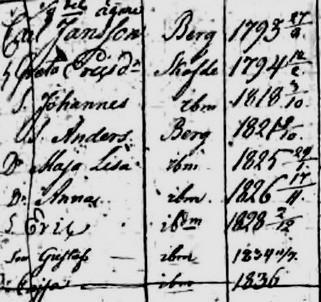 Jansson Berg 1793 27/9
Greta Persdr 1794 12/2
S. Johannes ibm 1818 3/10
S. Anders Berg 182 /10
Dr Maja Lisa ibm 1825
Dr Anna ibm 1826 17/11
S Eric ibm 1828 3/12
Son Gustaf ibm 1834
ibm 1836